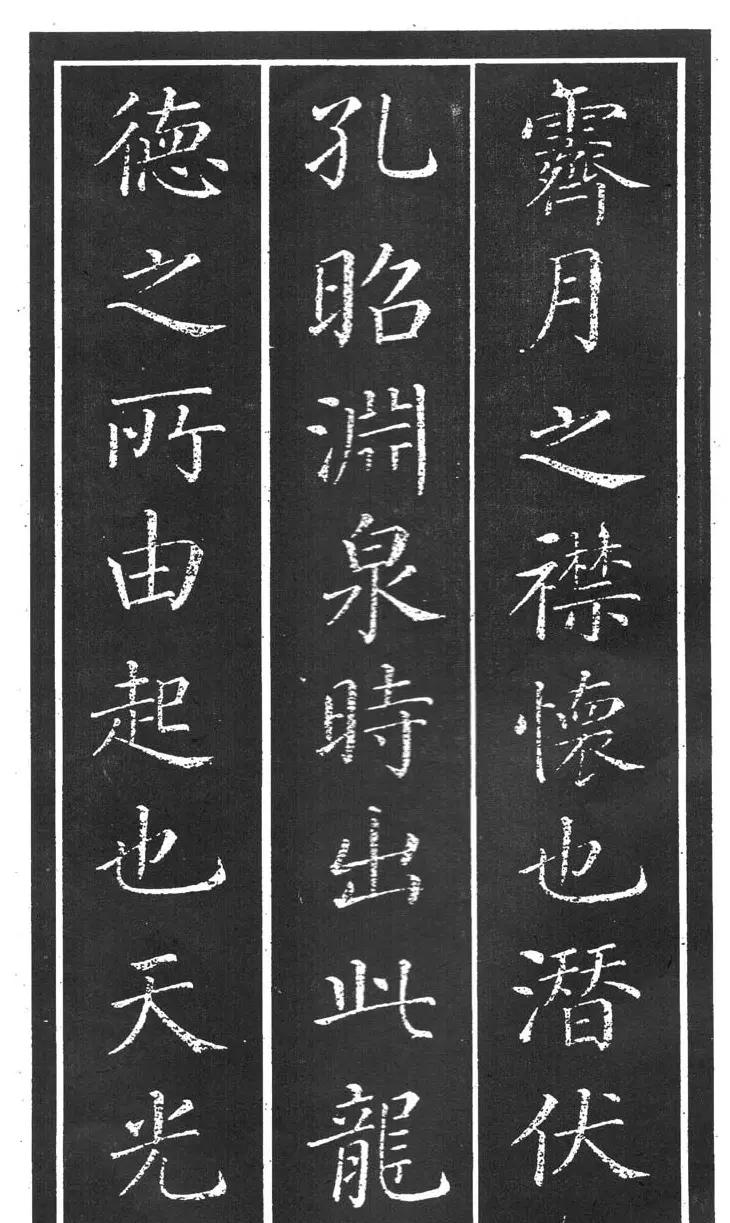 霽月之襟懷也潛伏
孔昭淵泉時出此龍
德之所由起也天光